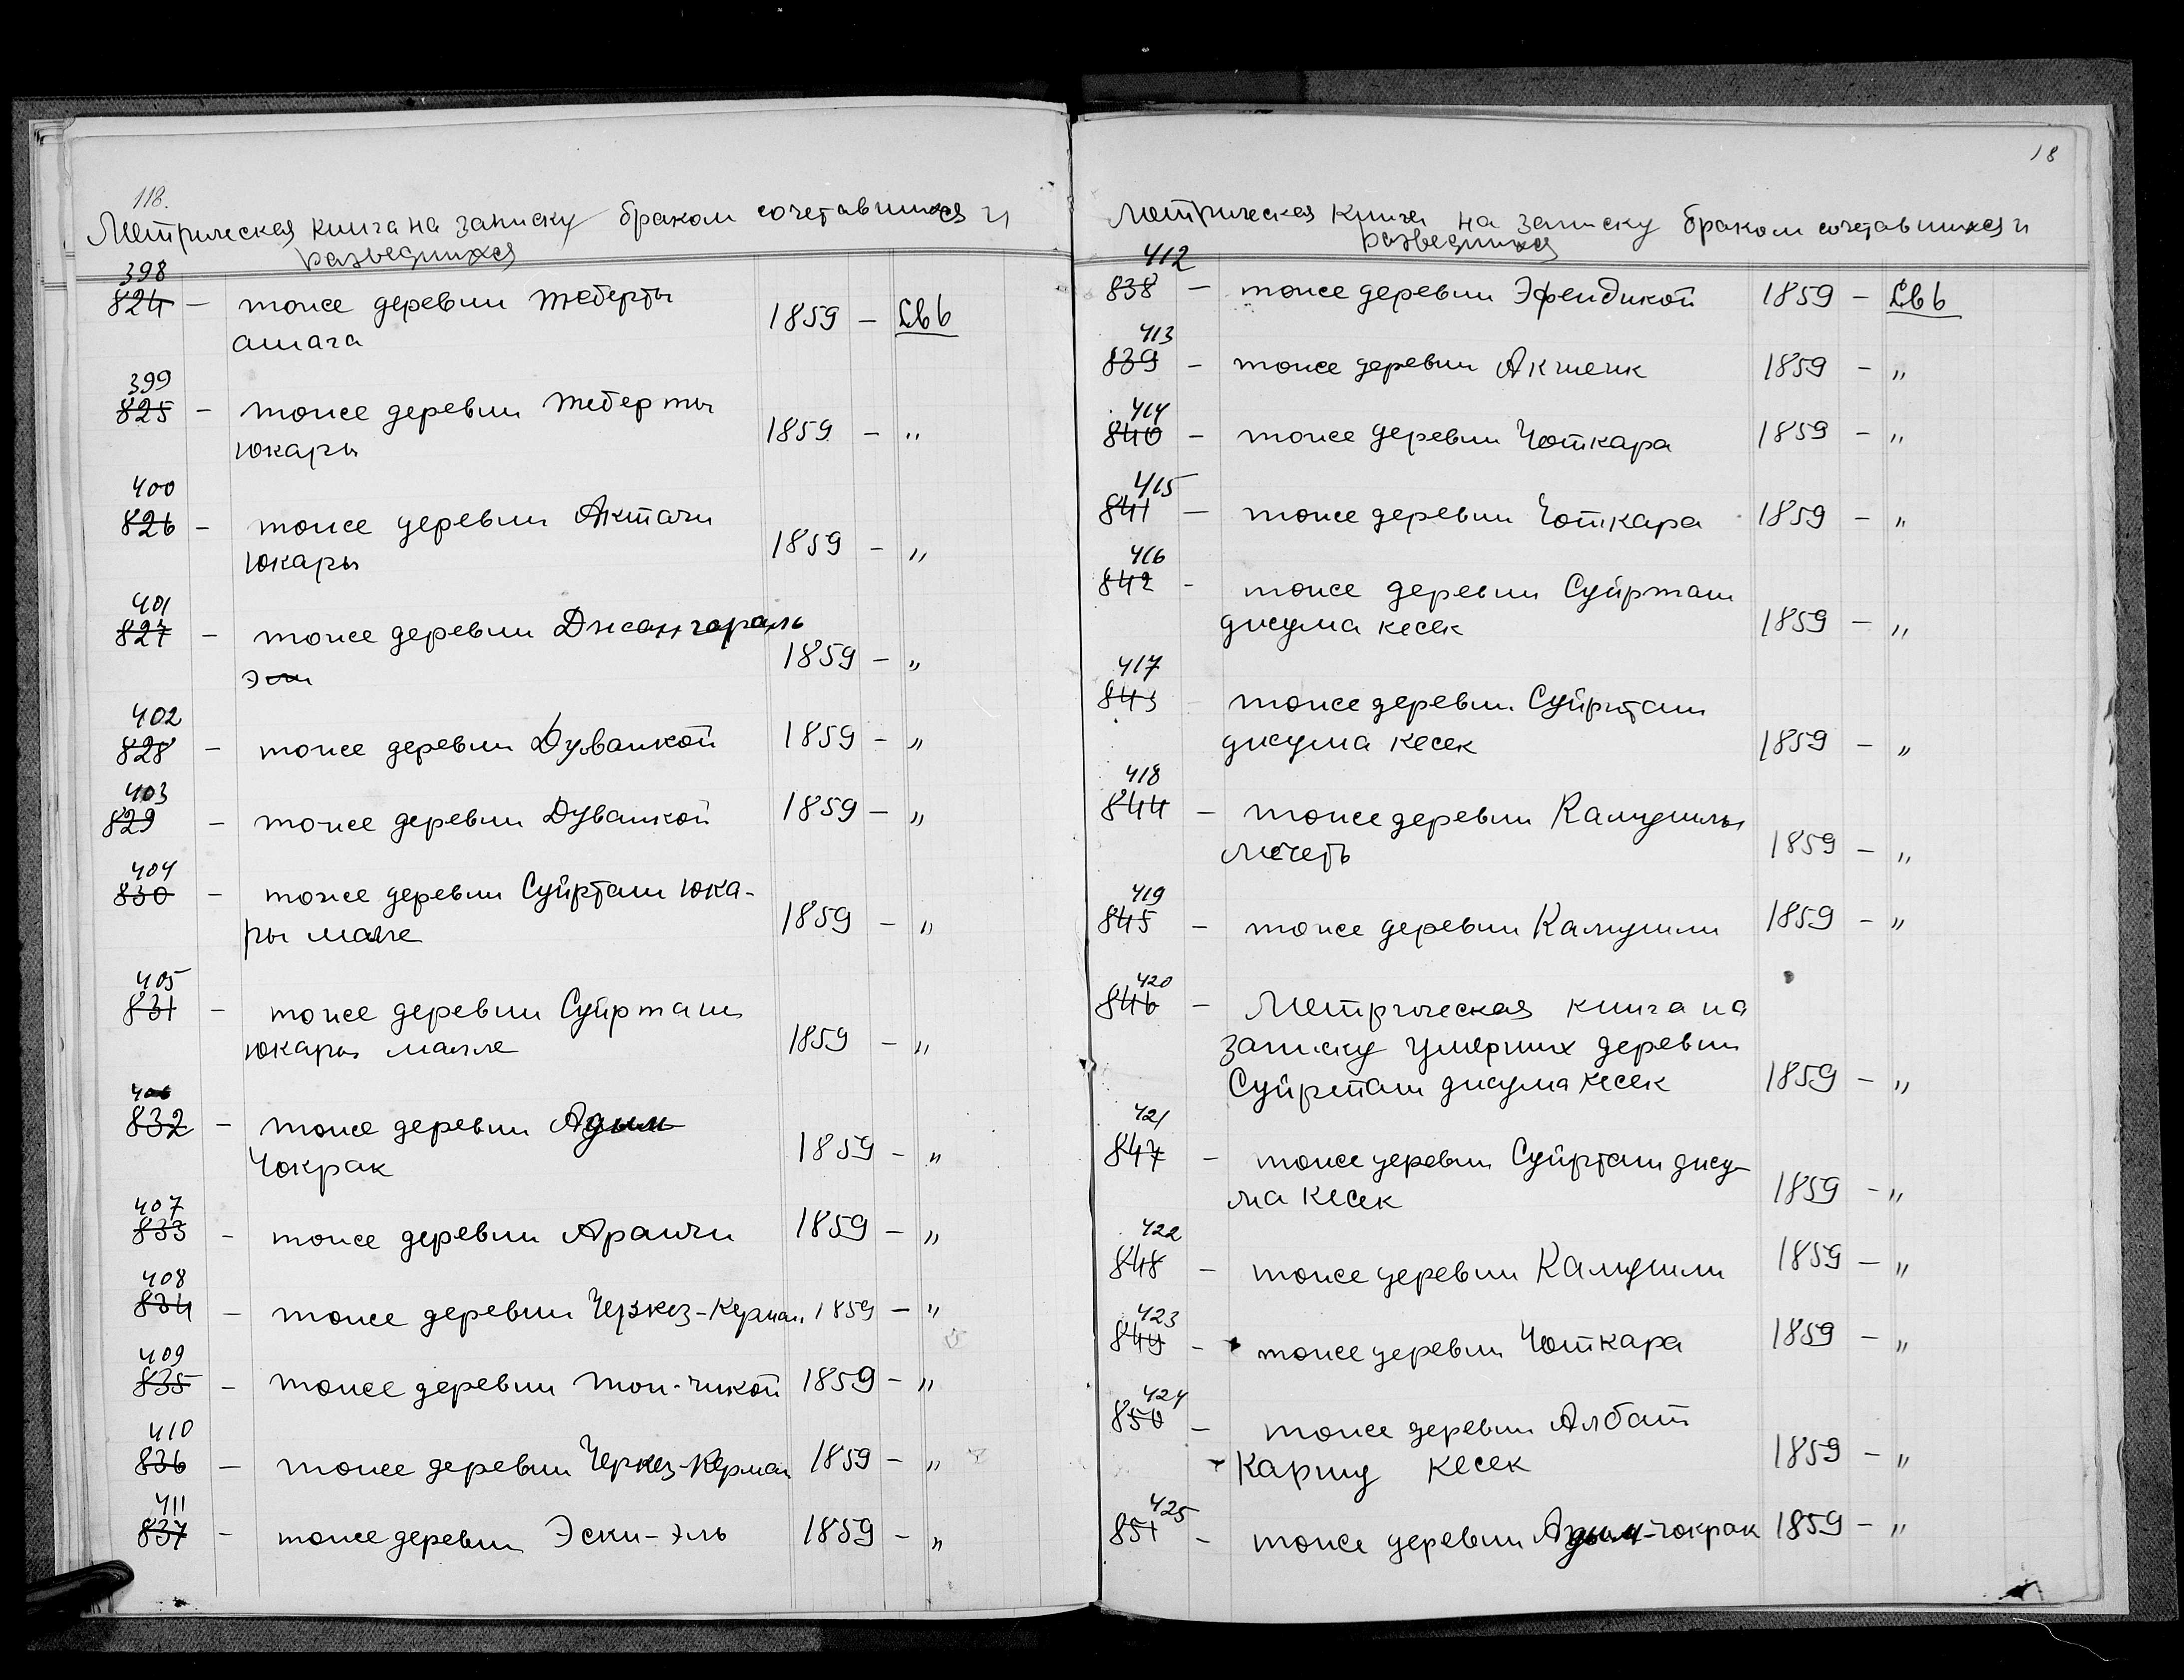 118.
Метрическая книга на записку браком сочетавшихся и
разведшихся
398
824 – тоже деревни Теберты
ашага
1859 – Свб
399
825 – тоже деревни Теберты
юкары
1859 – "
400
826 – тоже деревни Актачи
юкары
1859 – "
401
827 – тоже деревни
1859 – "
402
828 – тоже деревни Дуванкой 1859 – "
403
829 – тоже деревни Дуванкой 1859 – "
404
830 – тоже деревни Суйрташ юка-
ры малле
1859 – "
405
831 – тоже деревни Суйрташ
юкары малле
1859 – "
406
832 – тоже деревни Адым
Чокрак
1859 – "
407
833 – тоже деревни Аранчи 1859 – "
408
834 – тоже деревни Черкез-Керман 1859 – "
409
835 – тоже деревни Топ-чикой 1859 – "
410
836 – тоже деревни Черкез-Керман 1859 – "
411
837 – тоже деревни Эски-эль 1859 – "
18
Метрическая книга на записку браком сочетавшихся и
разведшихся
412
838 – тоже деревни Эфендикой 1859 – Свб
413
839 – тоже деревни Акшеик 1859 – "
414
840 – тоже деревни Чоткара 1859 – "
415
841 – тоже деревни Чоткара 1859 – "
416
842 – тоже деревни Суйрташ
джума кесек
1859 – "
417
843 – тоже деревни Суйрташ
джума кесек
1859 – "
418
844 – тоже деревни Камушлы
мечеть
1859 – "
419
845 – тоже деревни Камушли 1859 – "
420
846 – Метрическая книга на
записку умерших деревни
Суйрташ джума кесек 1859 – "
421
847 – тоже деревни Суйрташ джу-
ма кесек 1859 – "
422
848 – тоже деревни Камушли 1859 – "
423
849 – тоже деревни Чоткара 1859 – "
424
850 – тоже деревни Албат
Каршу кесек 1859 – "
425
851 – тоже деревни Адым-чокрак 1859 – "